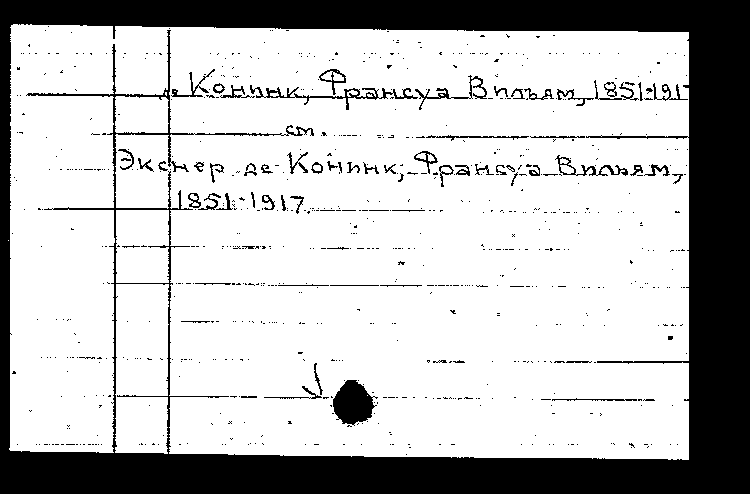 де Конинк, Франсуа Вильям, 1851-1917
см.
Экснер де Конинк, Франсуа Вильям,
1851-1917.